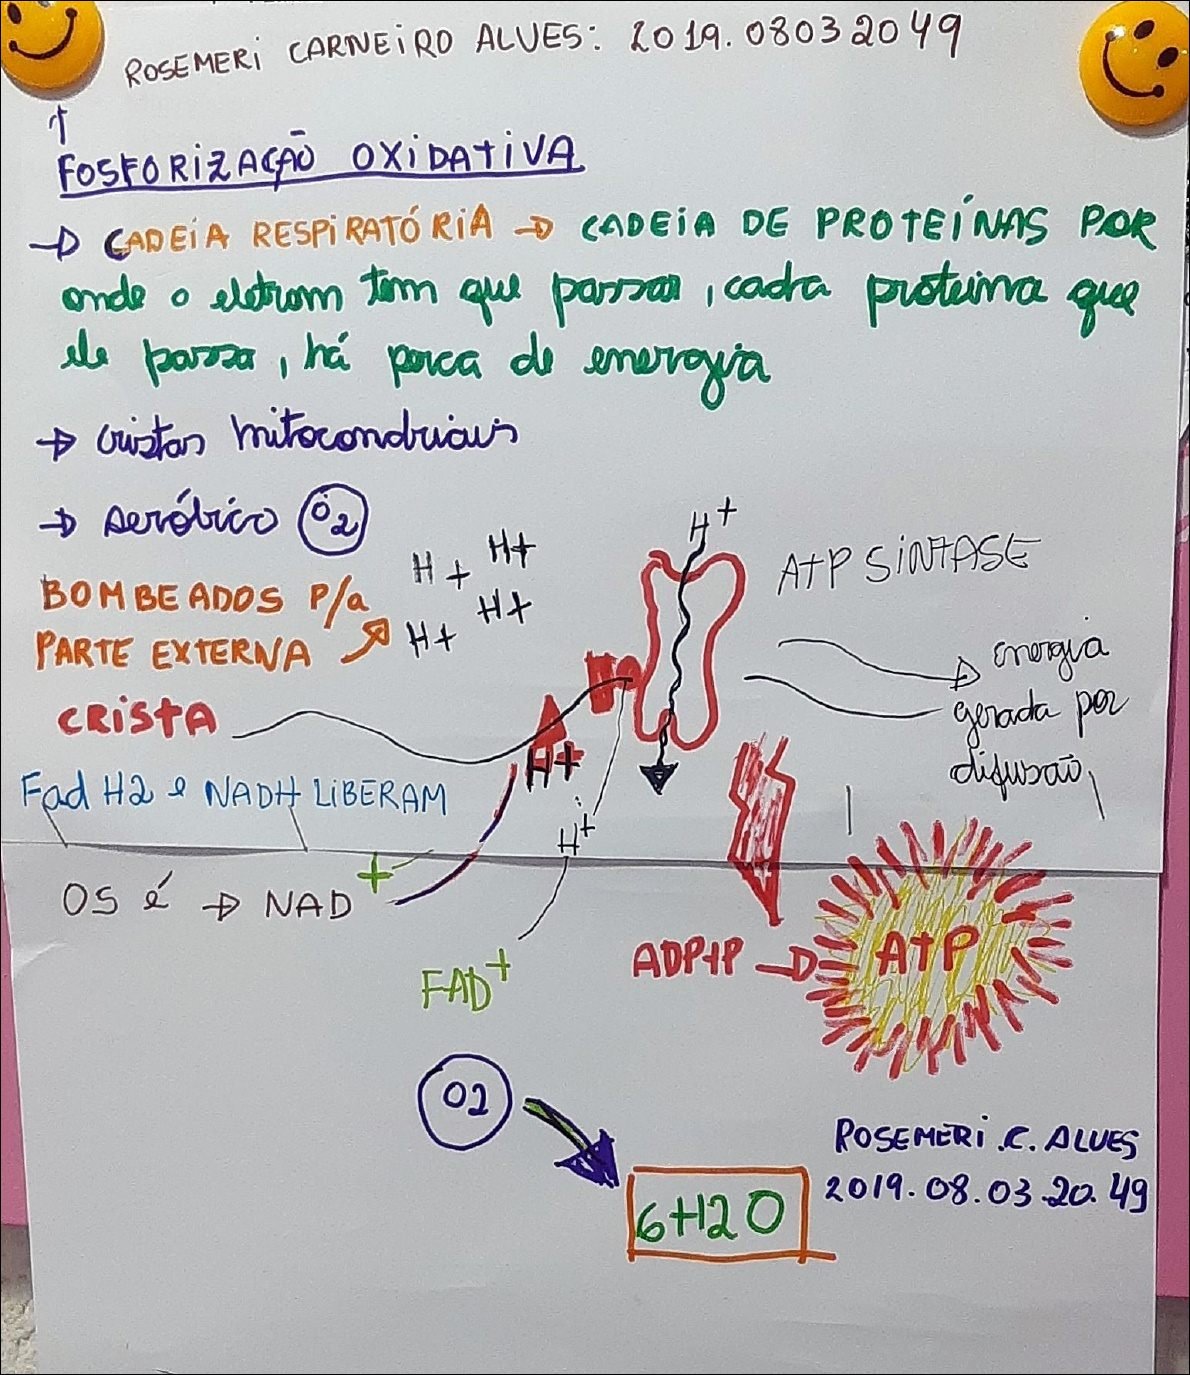 ROSEMERI CARNEIRO ALVES: 2019.08032049
FOSFORIZAÇÃO OXIDATIVA
→ CADEIA RESPIRATÓRIA → CADEIA DE PROTEÍNAS POR
onde o eletrom tem que passar, cada proteina que
ele passa, há perca de energia
→ cristas mitocondriais
→ Aeróbico O2
H+ H+ H+ H+
H+
ATP SINTASE
BOMBEADOS P/a
PARTE EXTERNA
energia
gerada por
difusão
CRISTA
H+
Fad H2 e NADH LIBERAM
H+
OS é → NAD+
FAD+
ADP+P → ATP
O2
6H2O
ROSEMERI.C.ALVES
2019.08.03.20.49